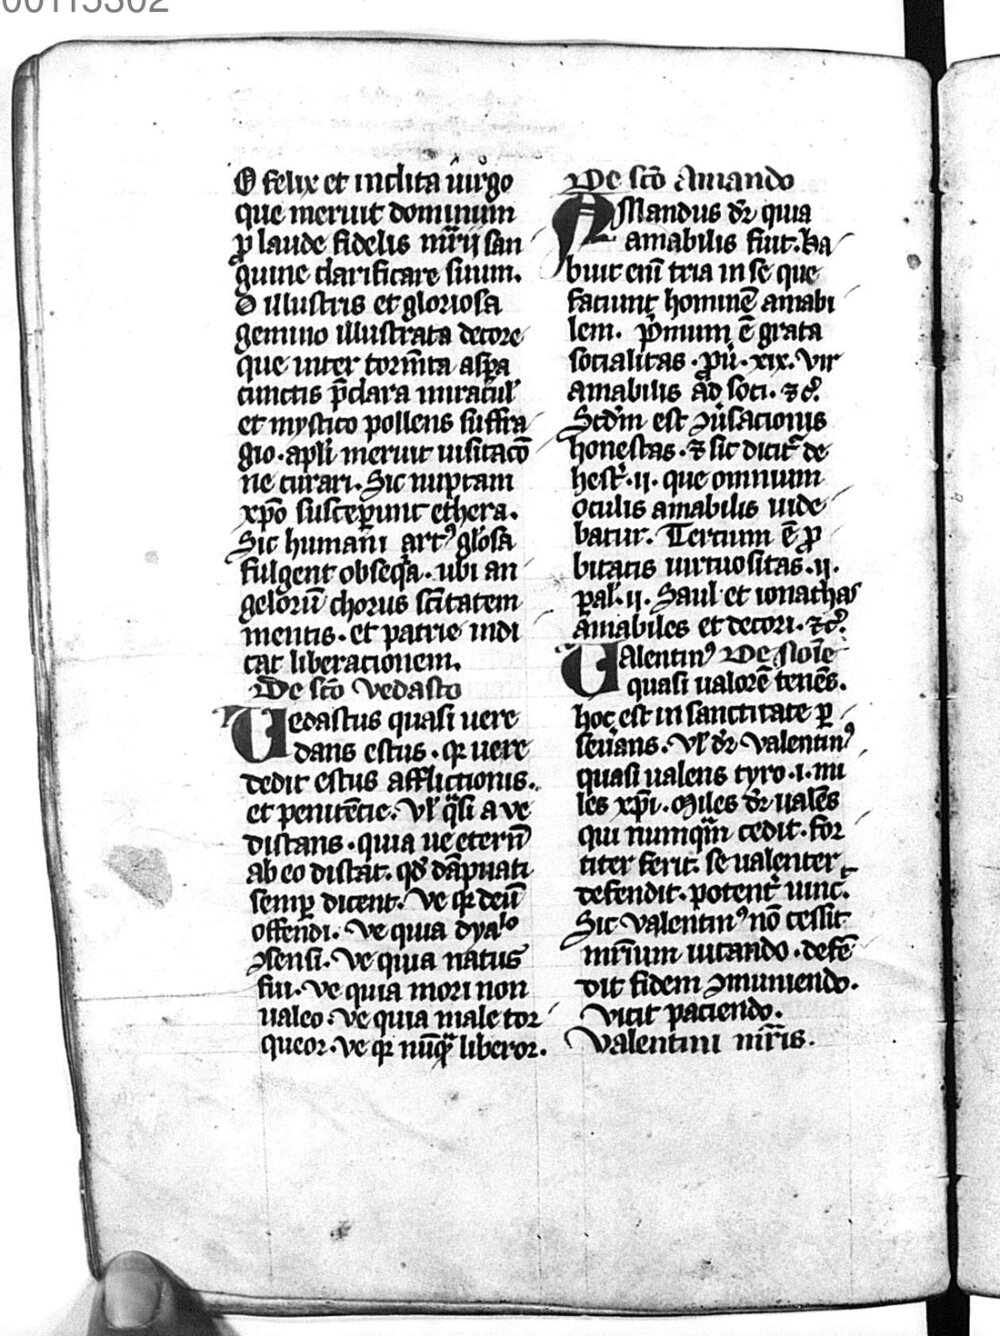 00115302
O felix et inclita uirgo
que meruit dominum
ꝓ laude fidelis mr̄ij san
guine clarificare suum.
O illustris et gloriosa
gemino illustrata decore
que inter torm̄ta aspa
cunctis p̄clara miracul̓
et mystico pollens suffra
gio. apl̓i meruit uisitacō
ne curari. Sic nuptam
xp̄o susceperunt ethera.
Sic humani artꝰ gl̓osa
fulgent obseq̄a. ubi an
gelorū chorus sc̄itatem
mentis. et patrie indi
cat liberationem.
De sc̄o Vedasto
Uedastus quasi uere
dans estus. qꝛ uere
dedit estus afflictionis.
et penitētie. Vl̓ q̄si a ve
distans. quia ue etern̄
ab eo distat. qd̓ dāpnati
semꝑ dicent. Ve qꝛ deū
offendi. Ve quia dyalo
ꝯsensi. Ve quia natus
fui. Ve quia mori non
ualeo. Ve quia male tor
queor. Ve qꝛ nūqꝫ liberor.
De sc̄o Amando
AMandus dr̄ quia
amabilis fuit. Ha
buit eni̅ tria in se que
faciunt hominē amabi
lem. p̓mum ē grata
socialitas. ꝓu̓. xix. Vir
amabilis ad soci. ⁊c̓.
Scd̓m est ꝯuersacionis
honestas. ⁊ sic dicit᷑ de
hest̓. ij. que omnium
oculis amabilis uide
batur. Tertium ē ꝓ
bitatis uirtuositas. ij.
pal̓. ij. Saul et ionathas
amabiles et decori. ⁊c̓.
Ualentinꝰ De Noīe
quasi ualorē tenēs.
hoc est in sanctitate ꝑ
seu̓ans. Vl̓ dr̄ Valentinꝰ
quasi ualens tyro. i. mi
les xp̄i. Miles dr̄ ualēs
qui numqͣm cedit. for
titer ferit. se ualenter
defendit. potent̓ uinc̓.
Sic Valentinꝰ nō cessit
mr̄ium uitando. defē
dit fidem ꝯmuniendo.
Vicit paciendo.
Valentini mr̄is.